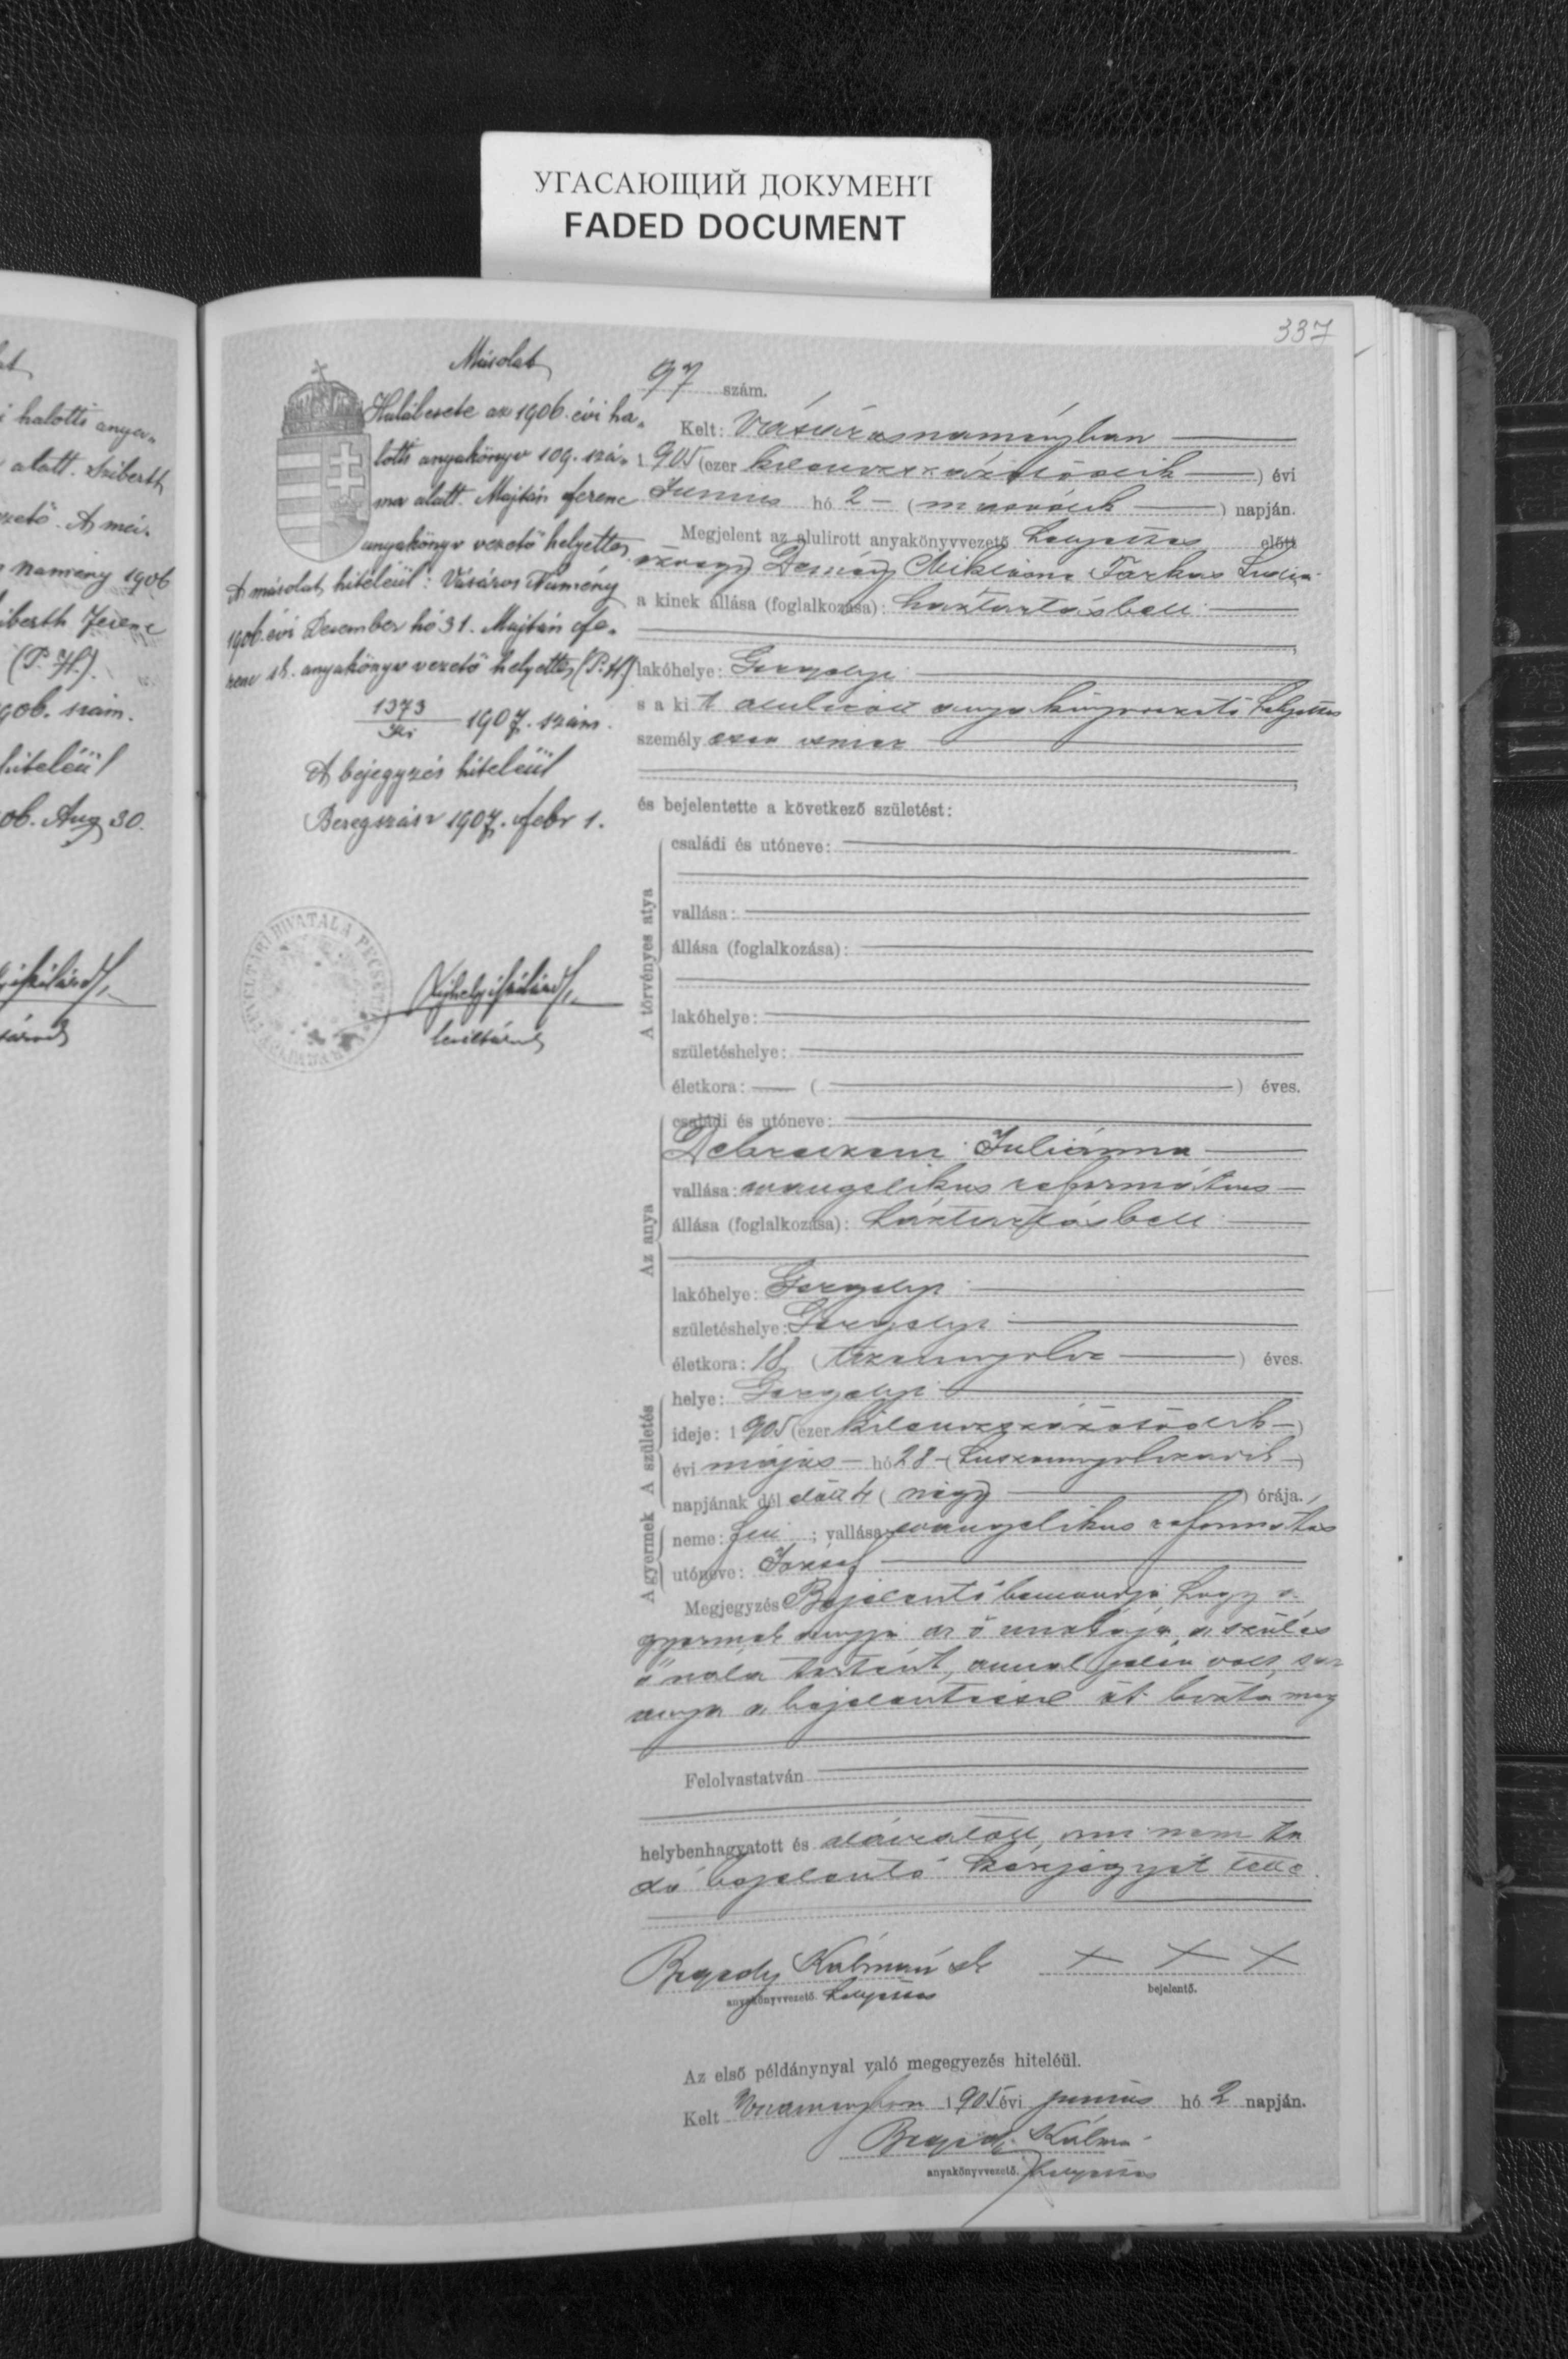 УГАСАЮЩИЙ ДОКУМЕНТ
FADED DOCUMENT
337
i halotti anya-
alatt. Szibert
vezető. A má-
namény 1906
iberth Ferenc
(P. H.).
906. szám.
hiteléül
06. Aug 30.
Másolat
Halálesete az 1906. évi ha-
lotti anyakönyv 109. szá-
ma alatt. Majtán Ferenc
anyakönyv vezető helyettes
A másolat hiteléül: Vásáros Namény
1906. évi December hó 31. Majtán Fe-
renc sk. anyakönyv vezető helyettes (P. H.)
1373
1907. szám.
A bejegyzés hiteléül
Beregszász 1907. febr 1.
levéltárnok
97 szám.
Kelt: Vásárosnaményban
1905 (ezer kilencszázötödik) évi
Junius hó 2 (második) napján.
Megjelent az alulirott anyakönyvvezető helyettes előtt
özvegy Miklósné Farkas
a kinek állása (foglalkozása): háztartásbeli
lakóhelye: Gergelyi
s a ki t alulirott anyakönyvvezető helyettes
személy esen ismer
és bejelentette a következő születést:
A törvényes atya
családi és utóneve:
vallása:
állása (foglalkozása):
lakóhelye:
születéshelye:
életkora: ( ) éves.
Az anya
családi és utóneve:
Debreczeni Juliánna
vallása: evangelikus református
állása (foglalkozása): háztartásbeli
lakóhelye: Gergelyi
születéshelye: Gergelyi
életkora: 18 (tizennyolcz) éves.
A születés
helye: Gergelyi
ideje: 1905 (ezer kilencszázötödik)
évi május hó 28 (huszonnyolczadik)
napjának dél előtt 4 (négy) órája.
A gyermek
neme: fiu; vallása: evangelikus református
utóneve: József
Megjegyzés Bejelentő bemondja, hogy a
gyermek anyja az ő unokája, a szülés
ő nála történt, annál jelen volt, az
anya a bejelentéssel őt bizta meg
Felolvastatván
helybenhagyatott és aláiratott, irni nem tu
dó bejelentő kézjegyét tette.
Kálmán sk
anyakönyvvezető helyettes
× × ×
bejelentő.
Az első példánynyal való megegyezés hiteléül.
Kelt 1905 évi junius hó 2 napján.
Kálmán
anyakönyvvezető. helyettes